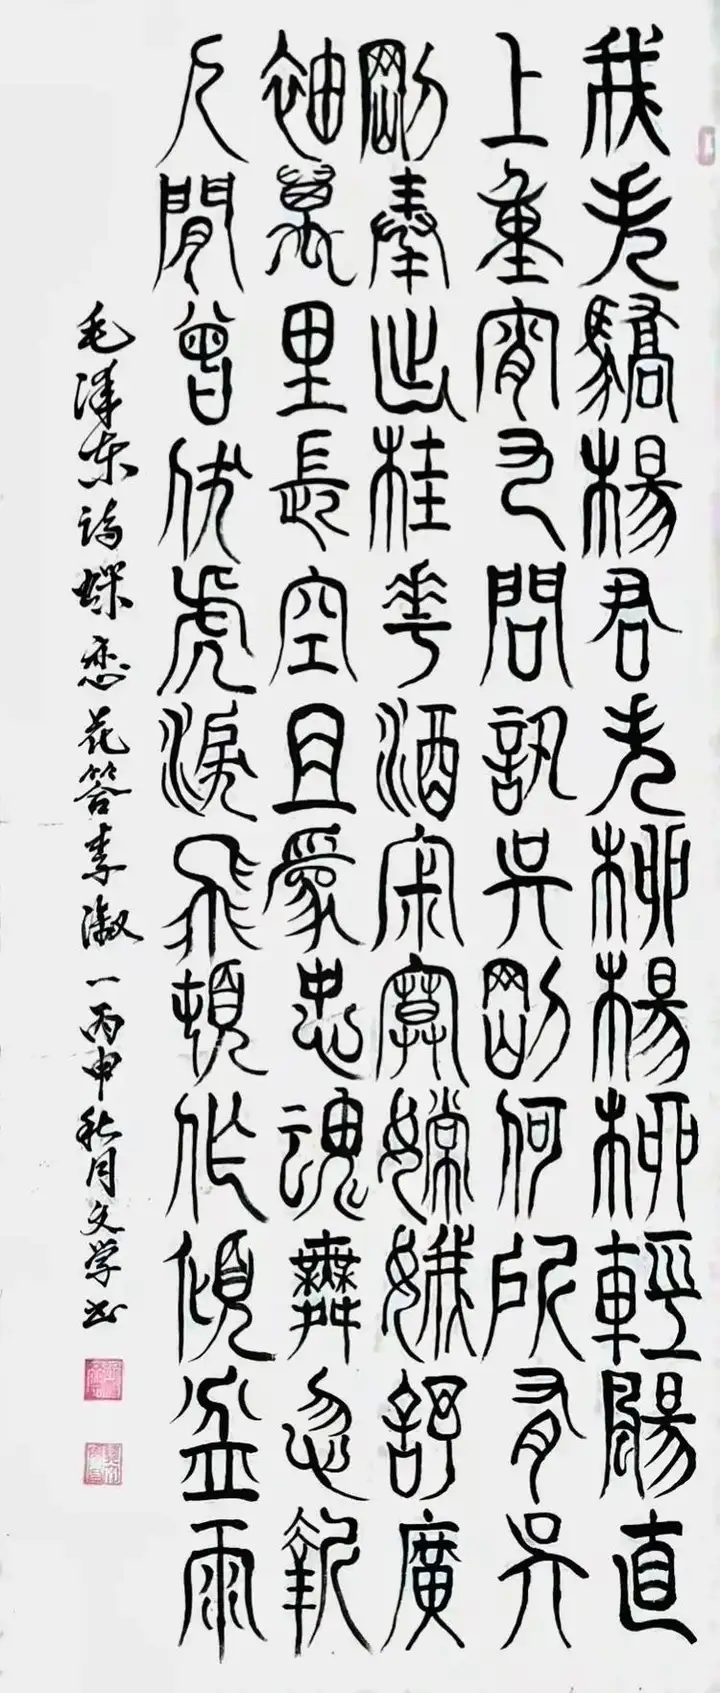 我失驕楊君失柳楊柳輕颺直
上重霄九問訊吳剛何所有吳
剛奉出桂華酒寂寞嫦娥舒廣
袖萬里長空且爲忠魂舞忽報
人間曾伏虎淚飛頓作傾盆雨
毛泽东诗蝶恋花答李淑一丙申秋月文学书